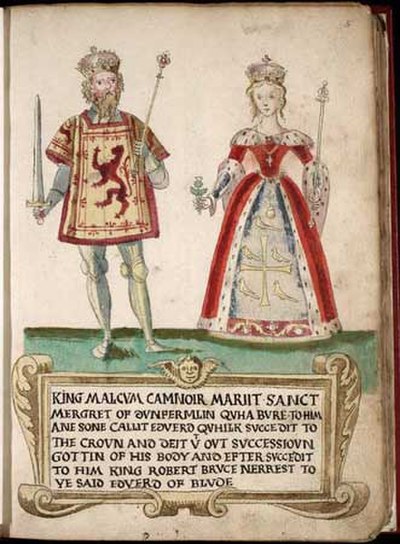 5
KING MALCVM CAMNOIR MARIIT SANCT
MERGRET OF DVNFERMLIN QVHA BVRE TO HIM
ANE SONE CALLIT EDVERD QVHILK SVCCEDIT TO
THE CROVN AND DEIT V̓ OVT SUCCESSIOVN
GOTTIN OF HIS BODY AND EFTER SVCCEDIT
TO HIM KING ROBERT BRVCE NERREST TO
YE SAID EDVERD OF BLVDE